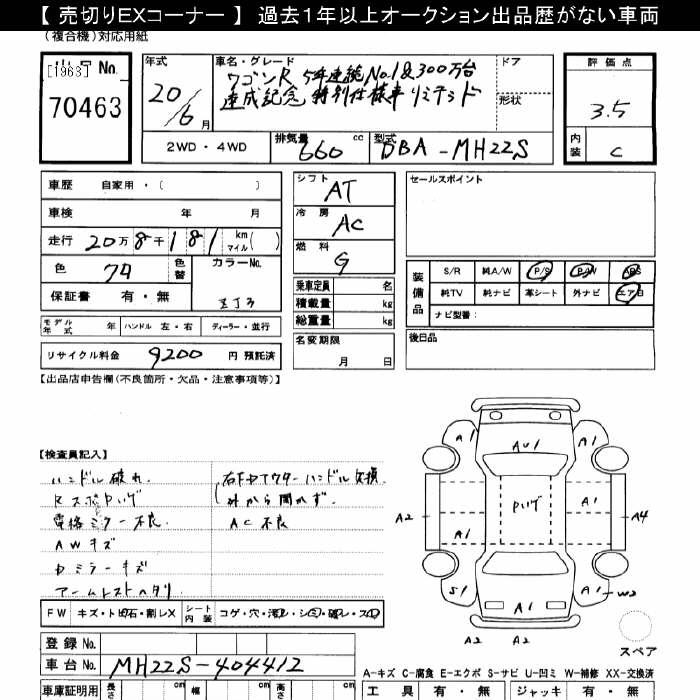 【 売切りEXコーナー 】 過去１年以上オークション出品歴がない車両
(複合機)対応用紙
[1963] No.
70463
年式
20/6月
車名・グレード
ワゴンR 5年連続No.1&300万台
達成記念 特別仕様車リミテッド
ドア
形状
2WD・4WD
排気量 660 cc
型式 DBA-MH22S
評価点
3.5
内装 C
車歴 自家用・( )
車検 年 月
走行 20万8千181 km マイル( )
色 74 色替
カラーNo. ZJ3
保証書 有・無
モデル年式 年 ハンドル 左・右 ディーラー・並行
リサイクル料金 9200 円 預託済
シフト AT
冷房 AC
燃料 G
乗車定員 名
積載量 kg
総重量 kg
名変期限
月 日
セールスポイント
装備品
S/R 純A/W P/S P/W ABS
純TV 純ナビ 革シート 外ナビ エアB
ナビ型番:
後日品
【出品店申告欄(不良箇所・欠品・注意事項等)】
【検査員記入】
ハンドル破れ.
Rスポロハゲ
電格ミラー不良.
AWキズ
ロミラーキズ
アームレストヘタリ
右Fロアウターハンドル交換
外から開かず.
AC不良
A1
A1
AU1
ハゲ
A1
A2
A4
A1
S1
A1
A1
W2
A2
A2
スペア
FW キズ・ト石・割レX
シート内装 コゲ・穴・汚レ・シミ・破レ・スレ
登録No.
車台No. MH22S-404412
A-キズ C-腐食 E-エクボ S-サビ U-凹ミ W-補修 XX-交換済
車庫証明用 長さ cm 幅 cm 高さ cm
工具 有・無 ジャッキ 有・無